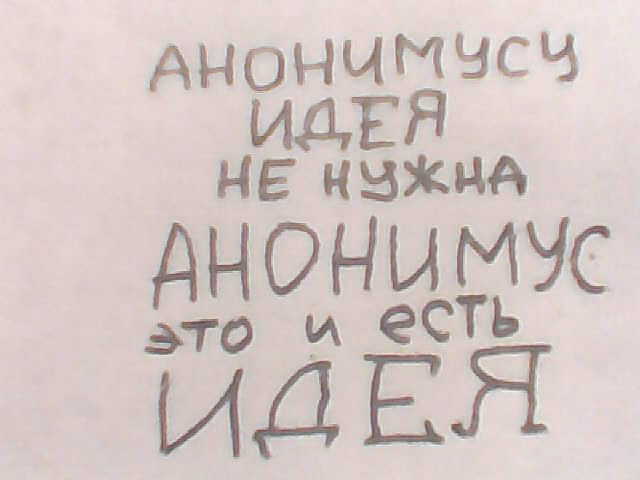 АНОНИМУСУ
ИДЕЯ
НЕ НУЖНА
АНОНИМУС
это и есть
ИДЕЯ